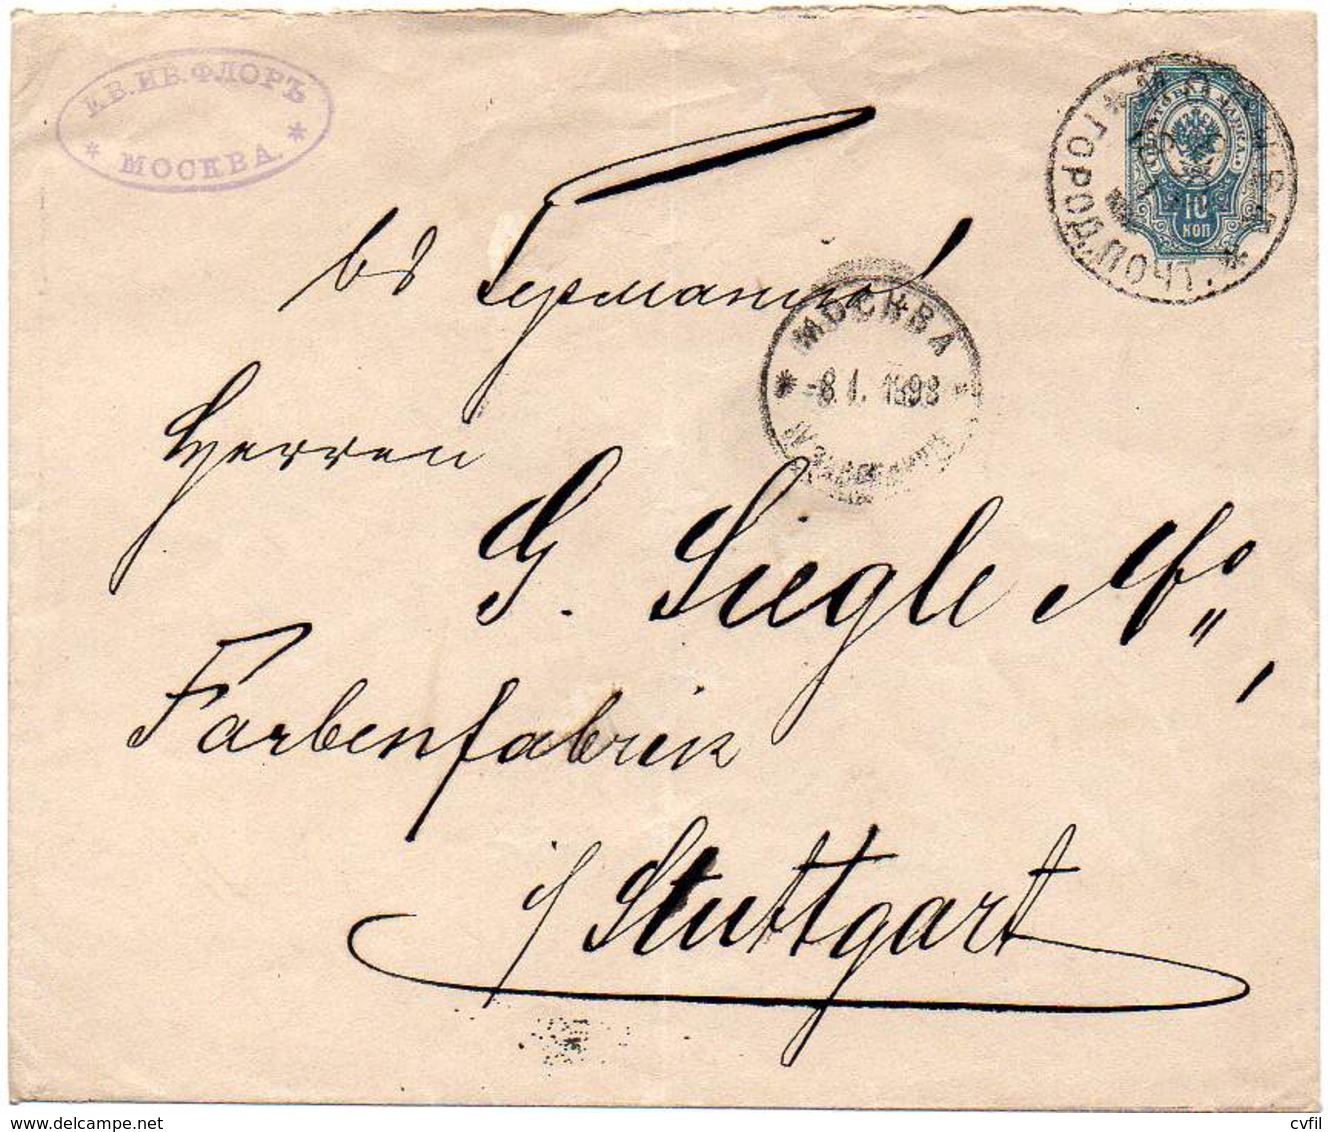 ЕВ.ИВ.ФЛОРЪ
* МОСКВА. *
ПОЧТОВАЯ МАРКА
10
КОП
въ Германию
МОСКВА
8.1.1898
Herren
G. Siegle & Co,
Farbenfabrik
i/ Stuttgart
www.delcampe.net
cvfil